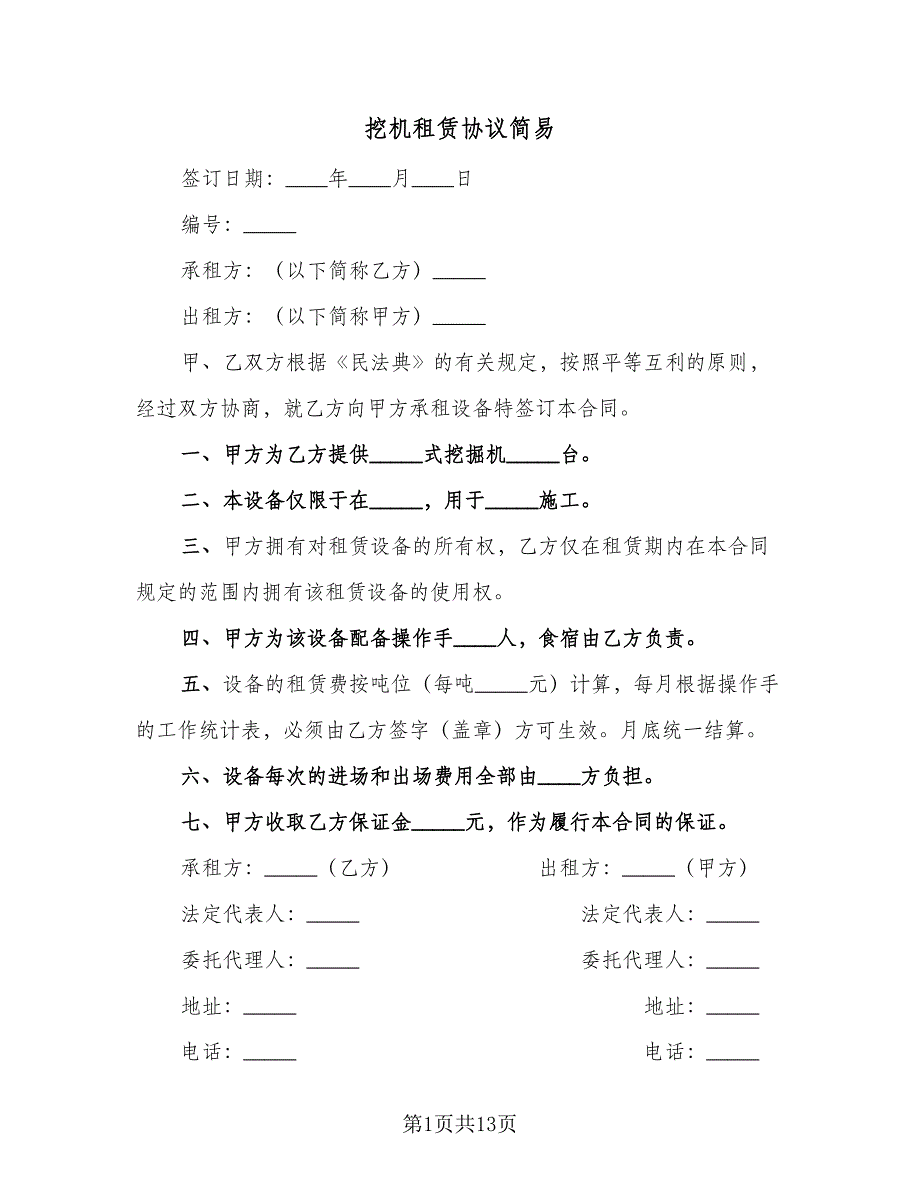 挖机租赁协议简易
签订日期：____年____月____日
编号：_____
承租方：（以下简称乙方）_____
出租方：（以下简称甲方）_____
甲、乙双方根据《民法典》的有关规定，按照平等互利的原则，
经过双方协商，就乙方向甲方承租设备特签订本合同。
一、甲方为乙方提供_____式挖掘机_____台。
二、本设备仅限于在_____，用于_____施工。
三、甲方拥有对租赁设备的所有权，乙方仅在租赁期内在本合同
规定的范围内拥有该租赁设备的使用权。
四、甲方为该设备配备操作手____人，食宿由乙方负责。
五、设备的租赁费按吨位（每吨_____元）计算，每月根据操作手
的工作统计表，必须由乙方签字（盖章）方可生效。月底统一结算。
六、设备每次的进场和出场费用全部由____方负担。
七、甲方收取乙方保证金_____元，作为履行本合同的保证。
承租方：_____（乙方） 出租方：_____（甲方）
法定代表人：_____ 法定代表人：_____
委托代理人：_____ 委托代理人：_____
地址：_____ 地址：_____
电话：_____ 电话：_____
第1页共13页